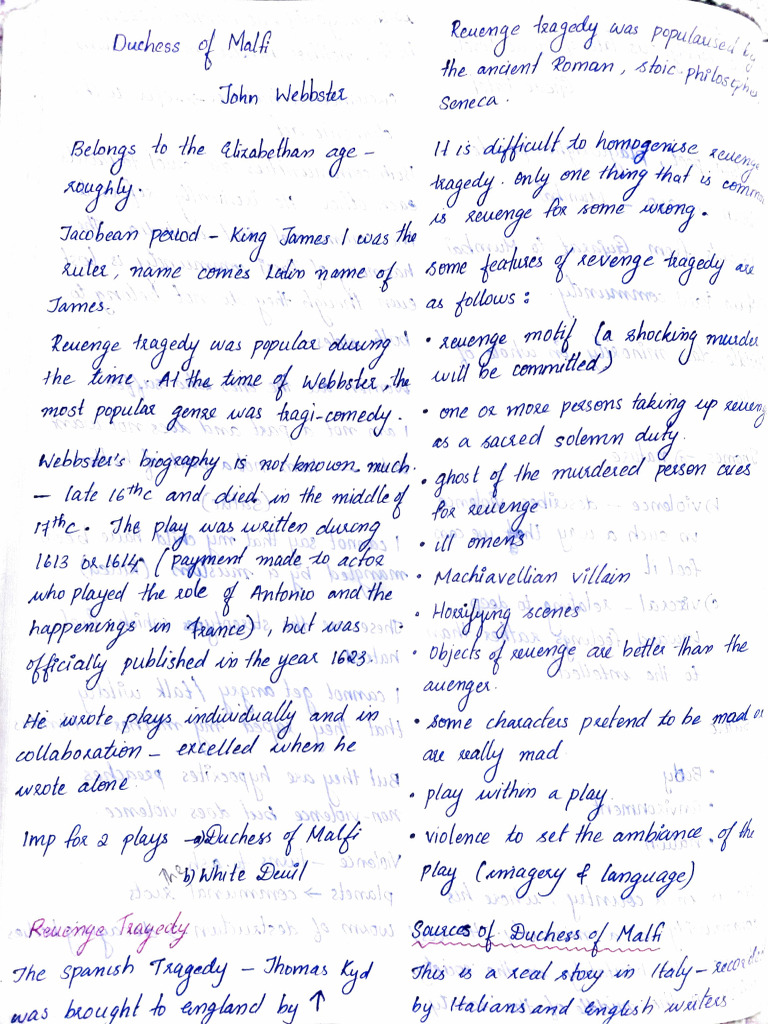 Duchess of Malfi
John Webbster
Belongs to the Elizabethan age -
roughly.
Jacobean period - King James I was the
ruler, name comes Latin name of
James.
Revenge tragedy was popular during
the time. At the time of Webbster, the
most popular genre was tragi-comedy.
Webbster's biography is not known much.
- late 16thc and died in the middle of
17thc. The play was written during
1613 or 1614 (payment made to actor
who played the role of Antonio and the
happenings in france), but was
officially published in the year 1623
He wrote plays individually and in
collaboration - excelled when he
wrote alone.
Imp for 2 plays - a) Duchess of Malfi
b) White Devil
Revenge Tragedy
The Spanish Tragedy - Thomas Kyd
was brought to england by ↑
Revenge tragedy was popularised by
the ancient Roman, stoic philosopher
Seneca.
It is difficult to homogenise revenge
tragedy. only one thing that is common
is revenge for some wrong.
some features of revenge tragedy are
as follows:
• revenge motif (a shocking murder
will be committed)
• one or more persons taking up revenge
as a sacred solemn duty.
• ghost of the murdered person cries
for revenge
• ill omens
• Machiavellian villain
• Horrifying scenes
• Objects of revenge are better than the
avenger.
• some characters pretend to be mad or
are really mad
• play within a play.
• violence to set the ambiance of the
play (imagery & language)
Sources of Duchess of Malfi
This is a real story in Italy - recorded
by Italians and english writers